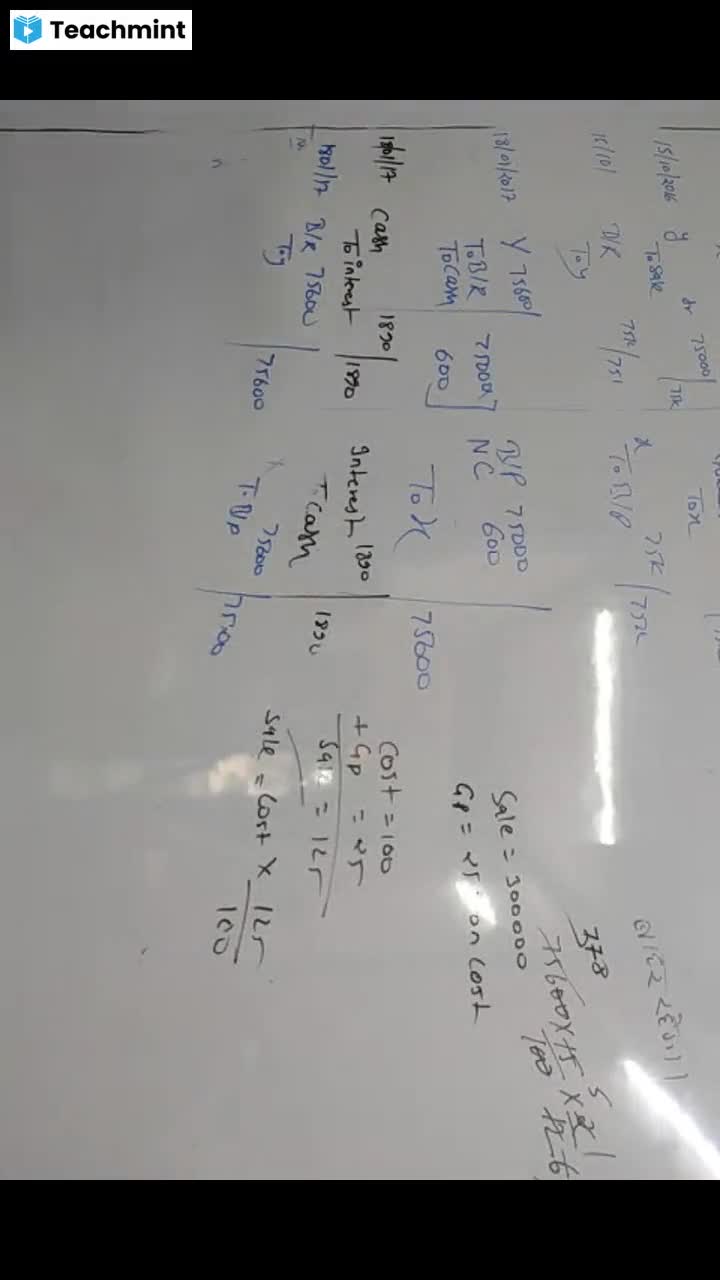 Teachmint
15/10/2016 y dr 75000
To sale 75k
15/10/ B/R 75k
To y 751
18/01/2017 Y 75600
To B/R 75000
To Cash 600
18/01/17 Cash 1890
To interest 1890
18/01/17 B/R 75600
To y 75600
To x
x 75k
To B/P 75k
B/P 75000
NC 600
To X 75600
Interest 1890
To Cash 1890
x 75600
To B/P 75600
Sale = 300000
GP = 25 on cost
Cost = 100
+ GP = 25
Sale = 125
Sale = Cost × 125
100
378
75600 × 15
100